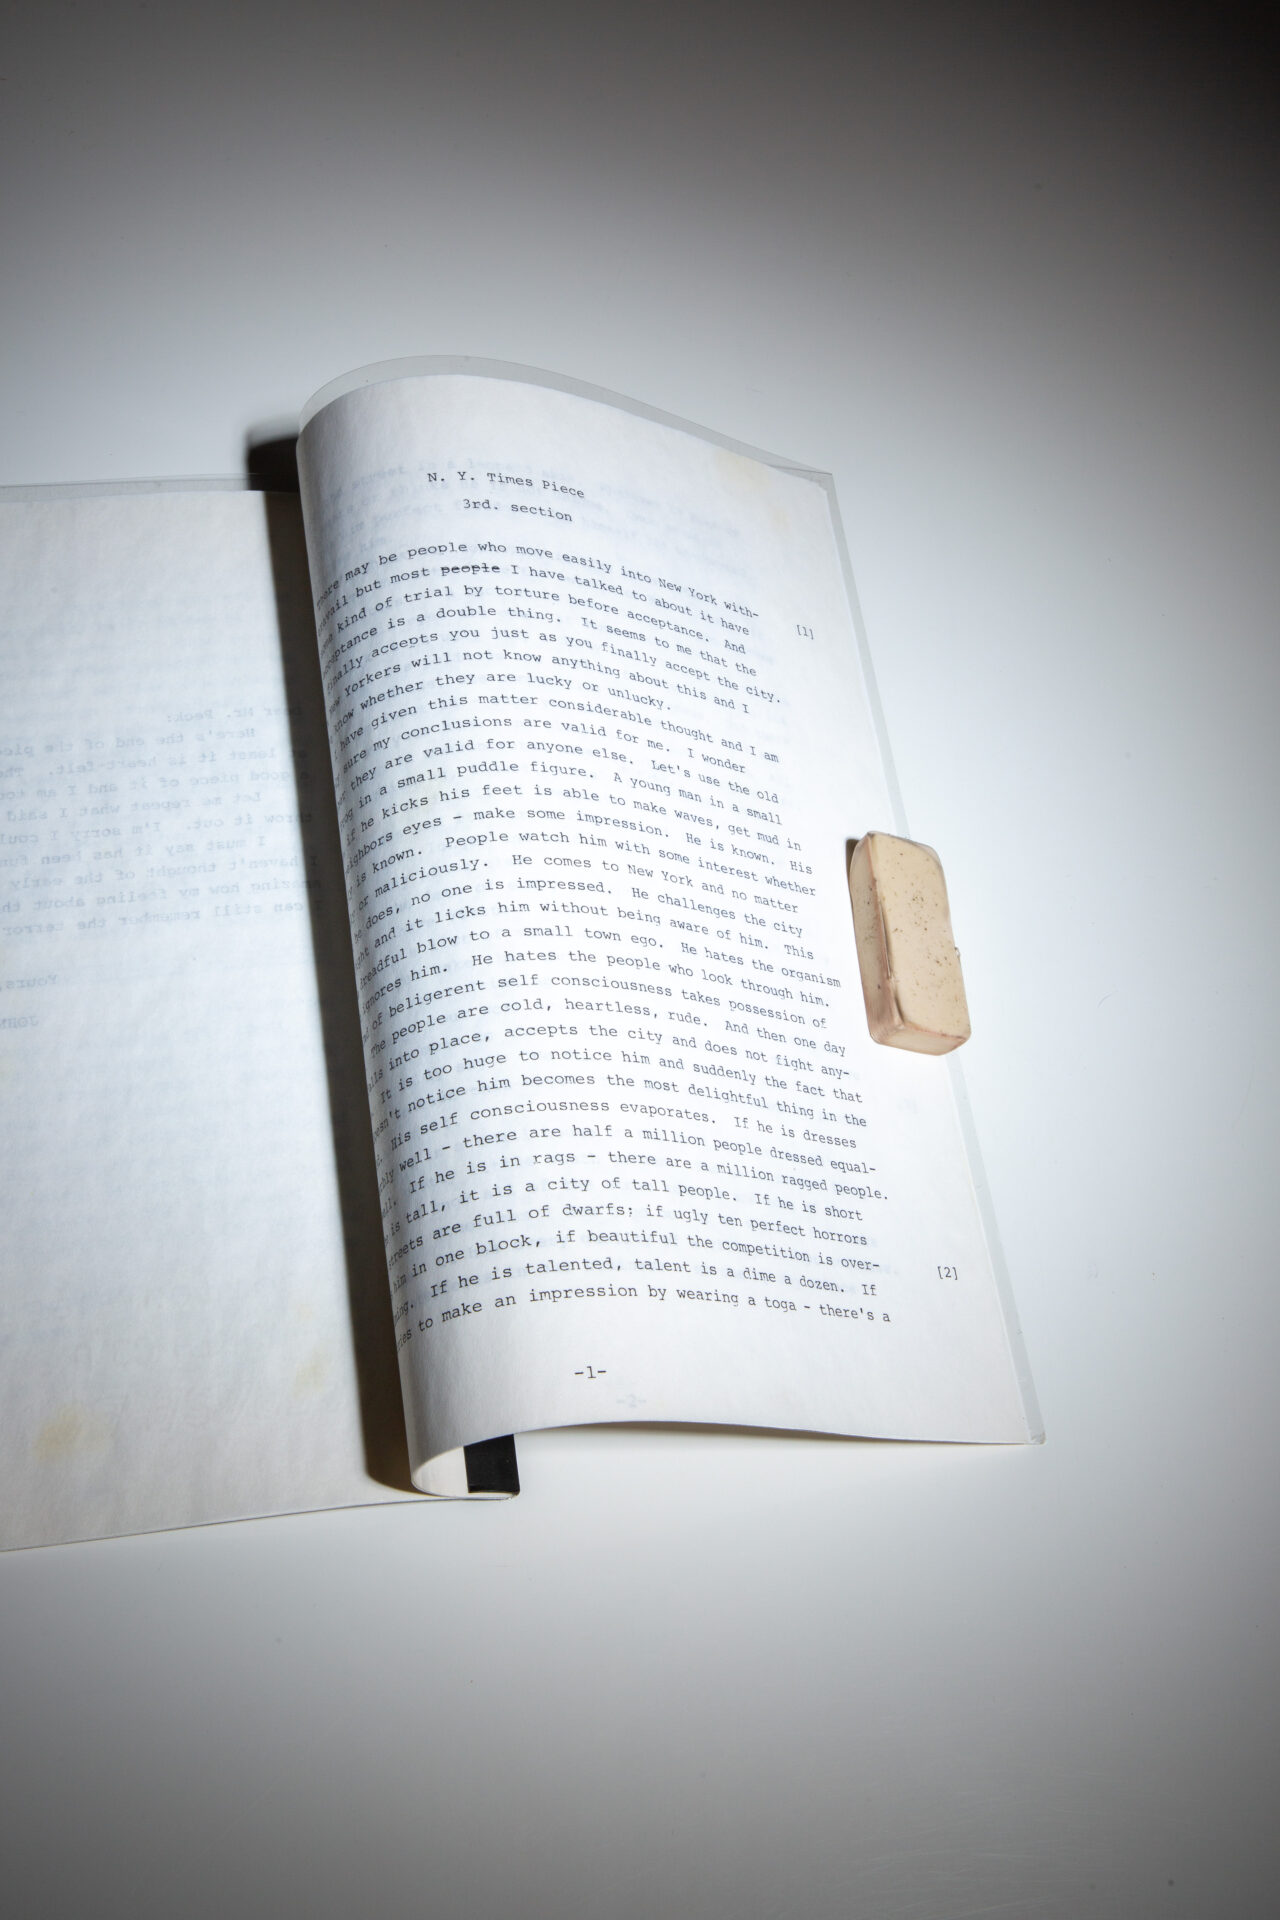 Dear Mr. Peck:
Here's the end of the piec
at least it is heart-felt. The
good piece of it and I am too
Let me repeat what I said
throw it out. I'm sorry I coul
I must say it has been fun
I haven't thought of the early
amazing how my feeling about th
I can still remember the terror
Yours,
JOHN
N. Y. Times Piece
3rd. section
There may be people who move easily into New York with-
travail but most people I have talked to about it have
some kind of trial by torture before acceptance. And [1]
acceptance is a double thing. It seems to me that the
finally accepts you just as you finally accept the city.
New Yorkers will not know anything about this and I
know whether they are lucky or unlucky.
I have given this matter considerable thought and I am
sure my conclusions are valid for me. I wonder
they are valid for anyone else. Let's use the old
frog in a small puddle figure. A young man in a small
if he kicks his feet is able to make waves, get mud in
neighbors eyes - make some impression. He is known. His
is known. People watch him with some interest whether
or maliciously. He comes to New York and no matter
he does, no one is impressed. He challenges the city
ght and it licks him without being aware of him. This
dreadful blow to a small town ego. He hates the organism
ignores him. He hates the people who look through him.
of beligerent self consciousness takes possession of
The people are cold, heartless, rude. And then one day
alls into place, accepts the city and does not fight any-
It is too huge to notice him and suddenly the fact that
esn't notice him becomes the most delightful thing in the
His self consciousness evaporates. If he is dresses
bly well - there are half a million people dressed equal-
If he is in rags - there are a million ragged people.
is tall, it is a city of tall people. If he is short
streets are full of dwarfs; if ugly ten perfect horrors
him in one block, if beautiful the competition is over-
ing. If he is talented, talent is a dime a dozen. If [2]
ries to make an impression by wearing a toga - there's a
-1-